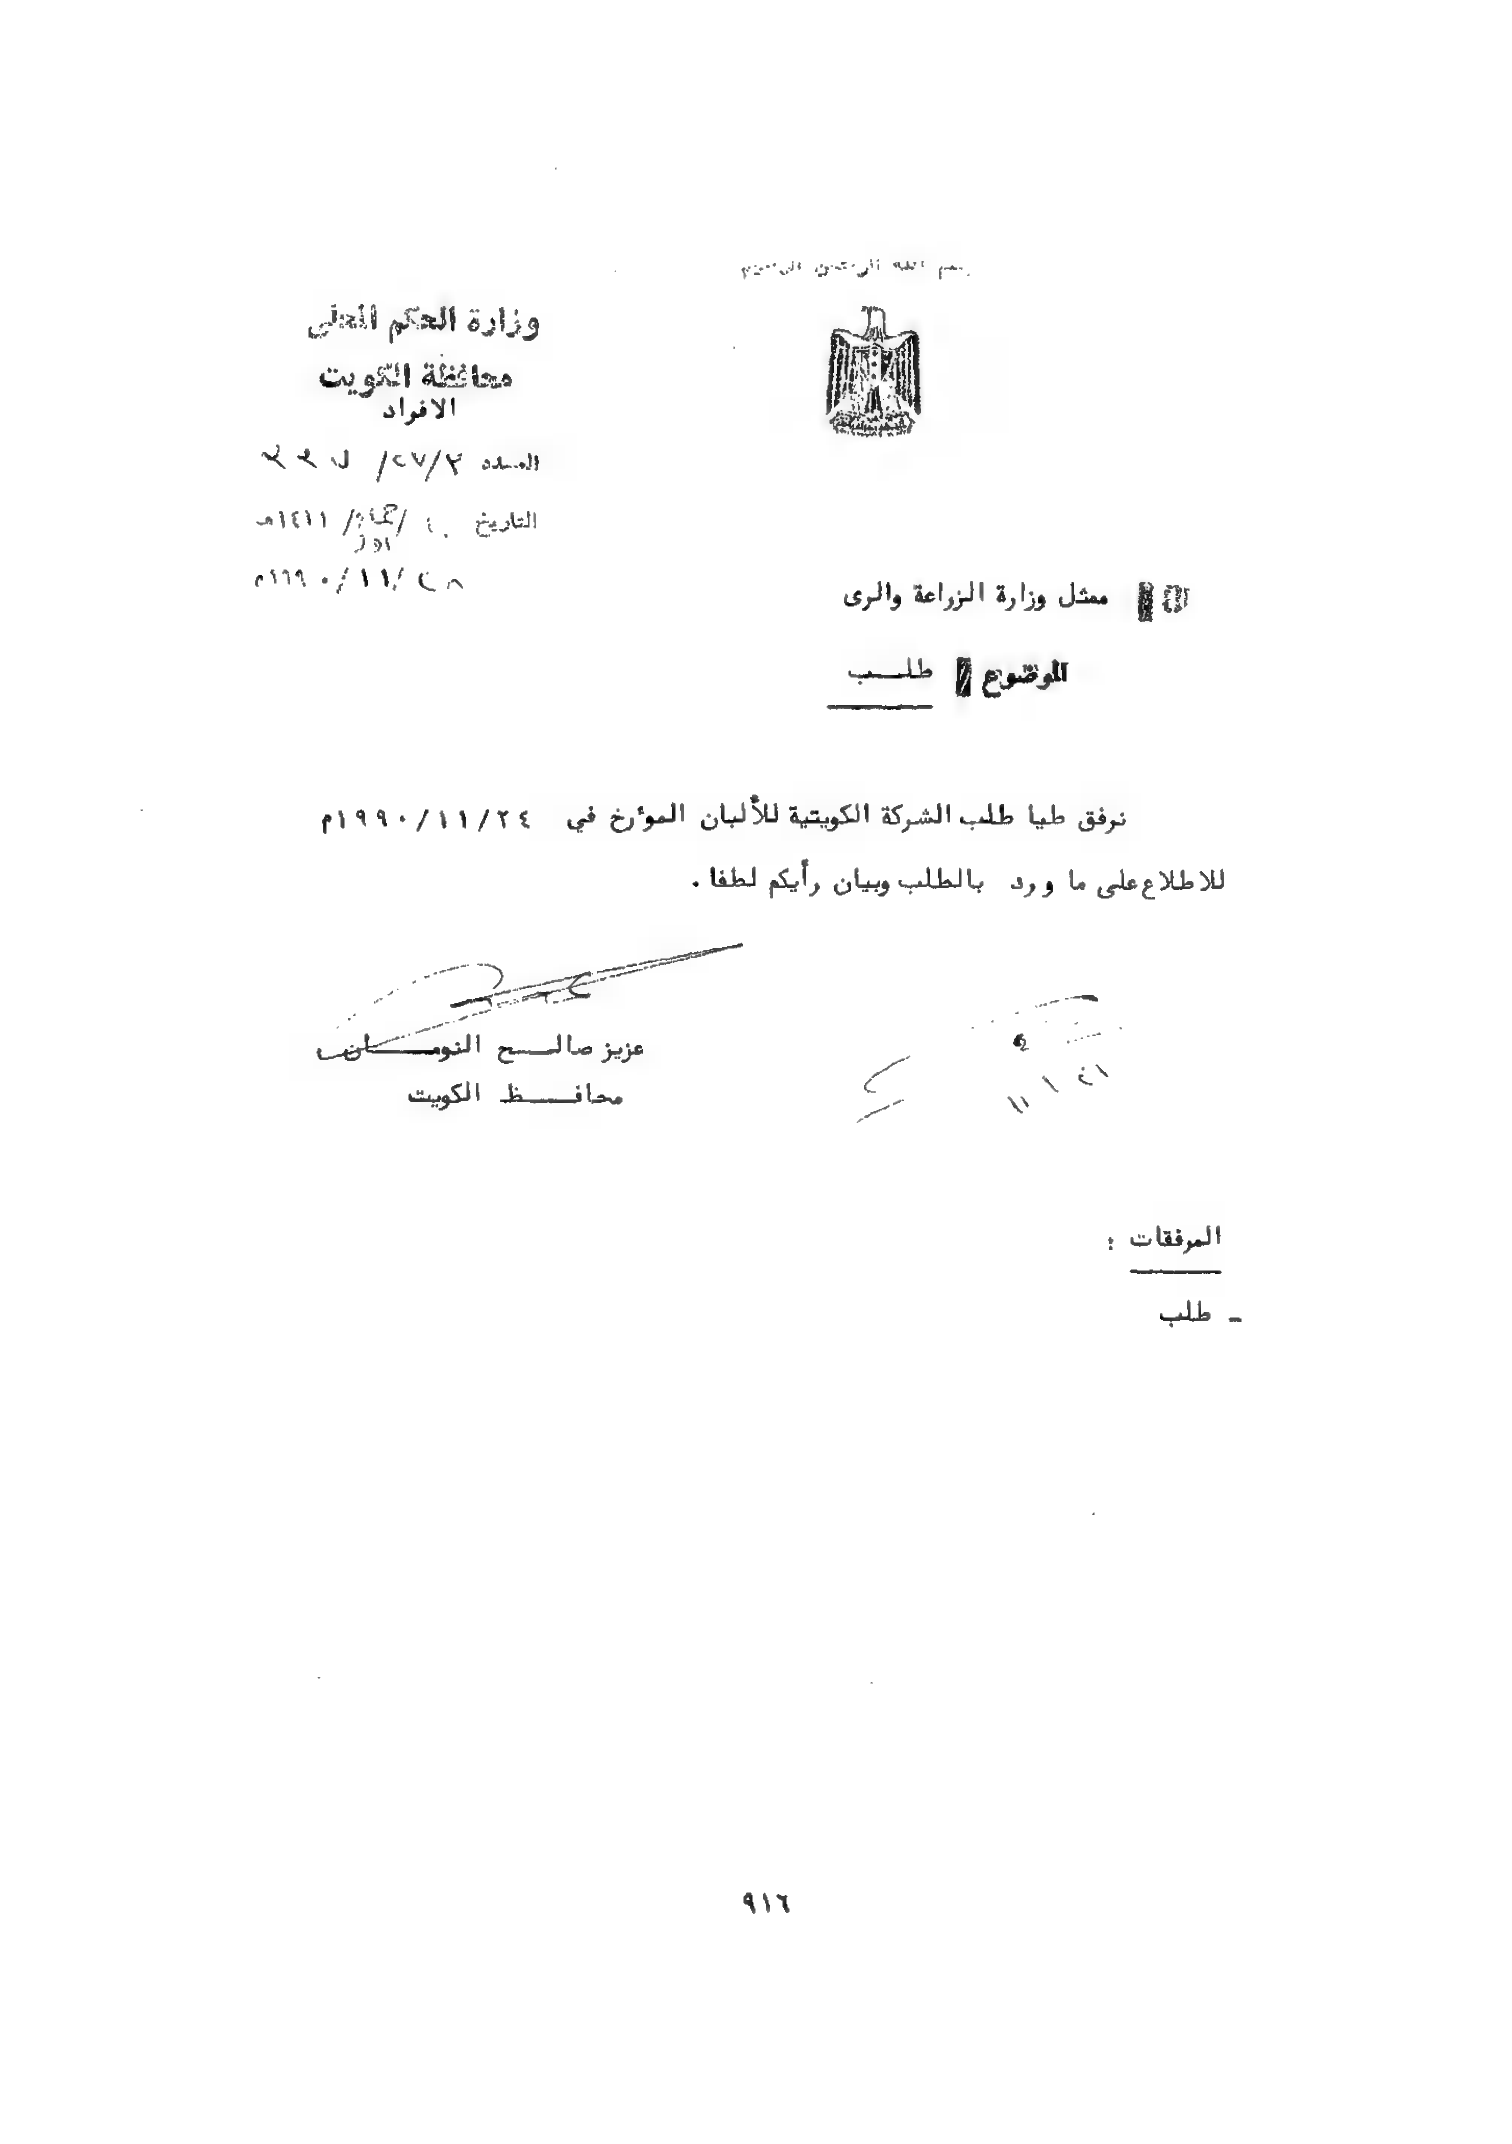 بسم الله الرحمن الرحيم
وزارة الحكم المحلي
محافظة الكويت
الافراد
العدد ٢٧/٢/
التاريخ / / ١٤١١هـ
٢٨/١١/١٩٩٠م
الى ممثل وزارة الزراعة والرى
الموضوع طلـــب
نرفق طيا طلب الشركة الكويتية للألبان الموٴرخ في ١٩٩٠/١١/٢٤م
للاطلاع على ما ورد بالطلب وبيان رأيكم لطفا .
عزيز صالـــح النومـــان
محافـــظ الكويت
المرفقات :
ـ طلب
٩١٦